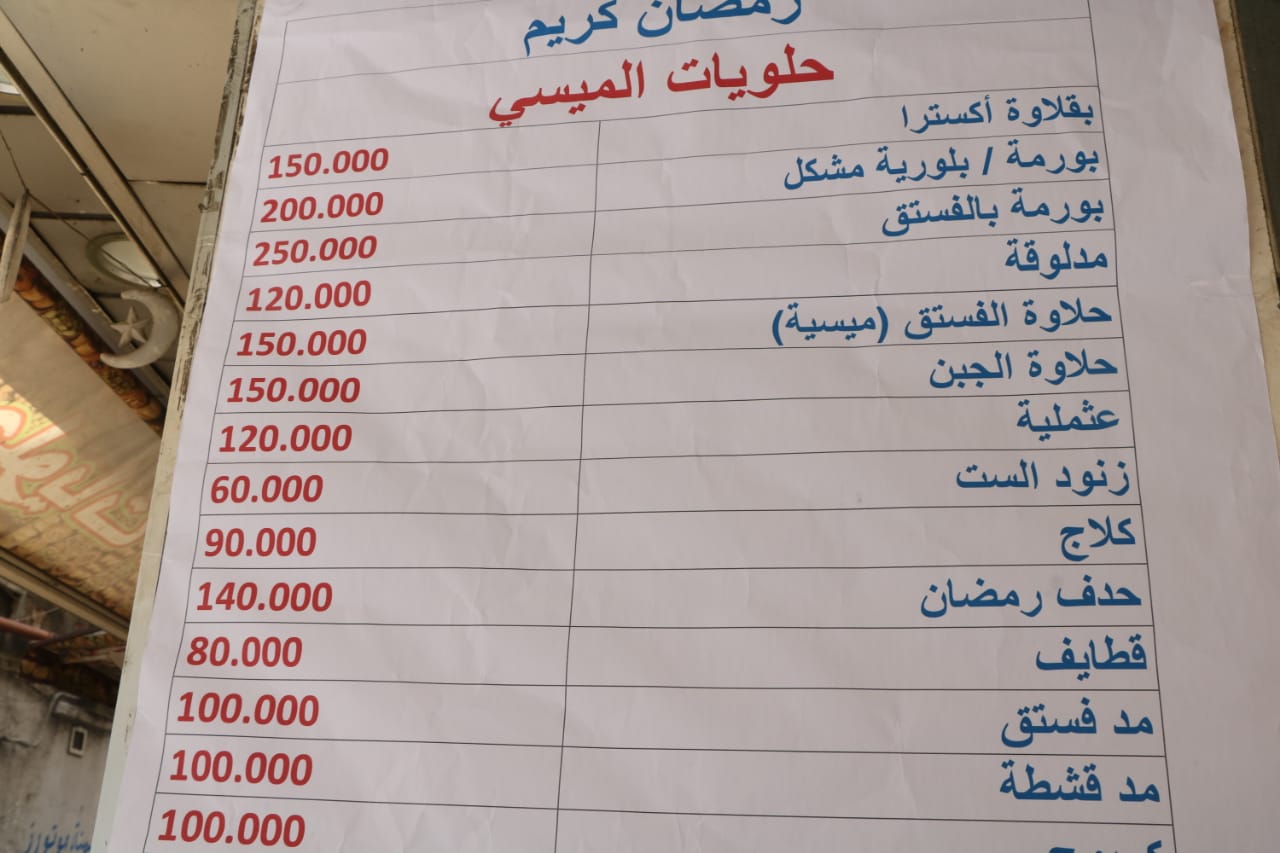 رمضان كريم
حلويات الميسي
بقلاوة أكسترا 150.000
بورمة / بلورية مشكل 200.000
بورمة بالفستق 250.000
مدلوقة 120.000
حلاوة الفستق (ميسية) 150.000
حلاوة الجبن 150.000
عثملية 120.000
زنود الست 60.000
كلاج 90.000
حدف رمضان 140.000
قطايف 80.000
مد فستق 100.000
مد قشطة 100.000
100.000